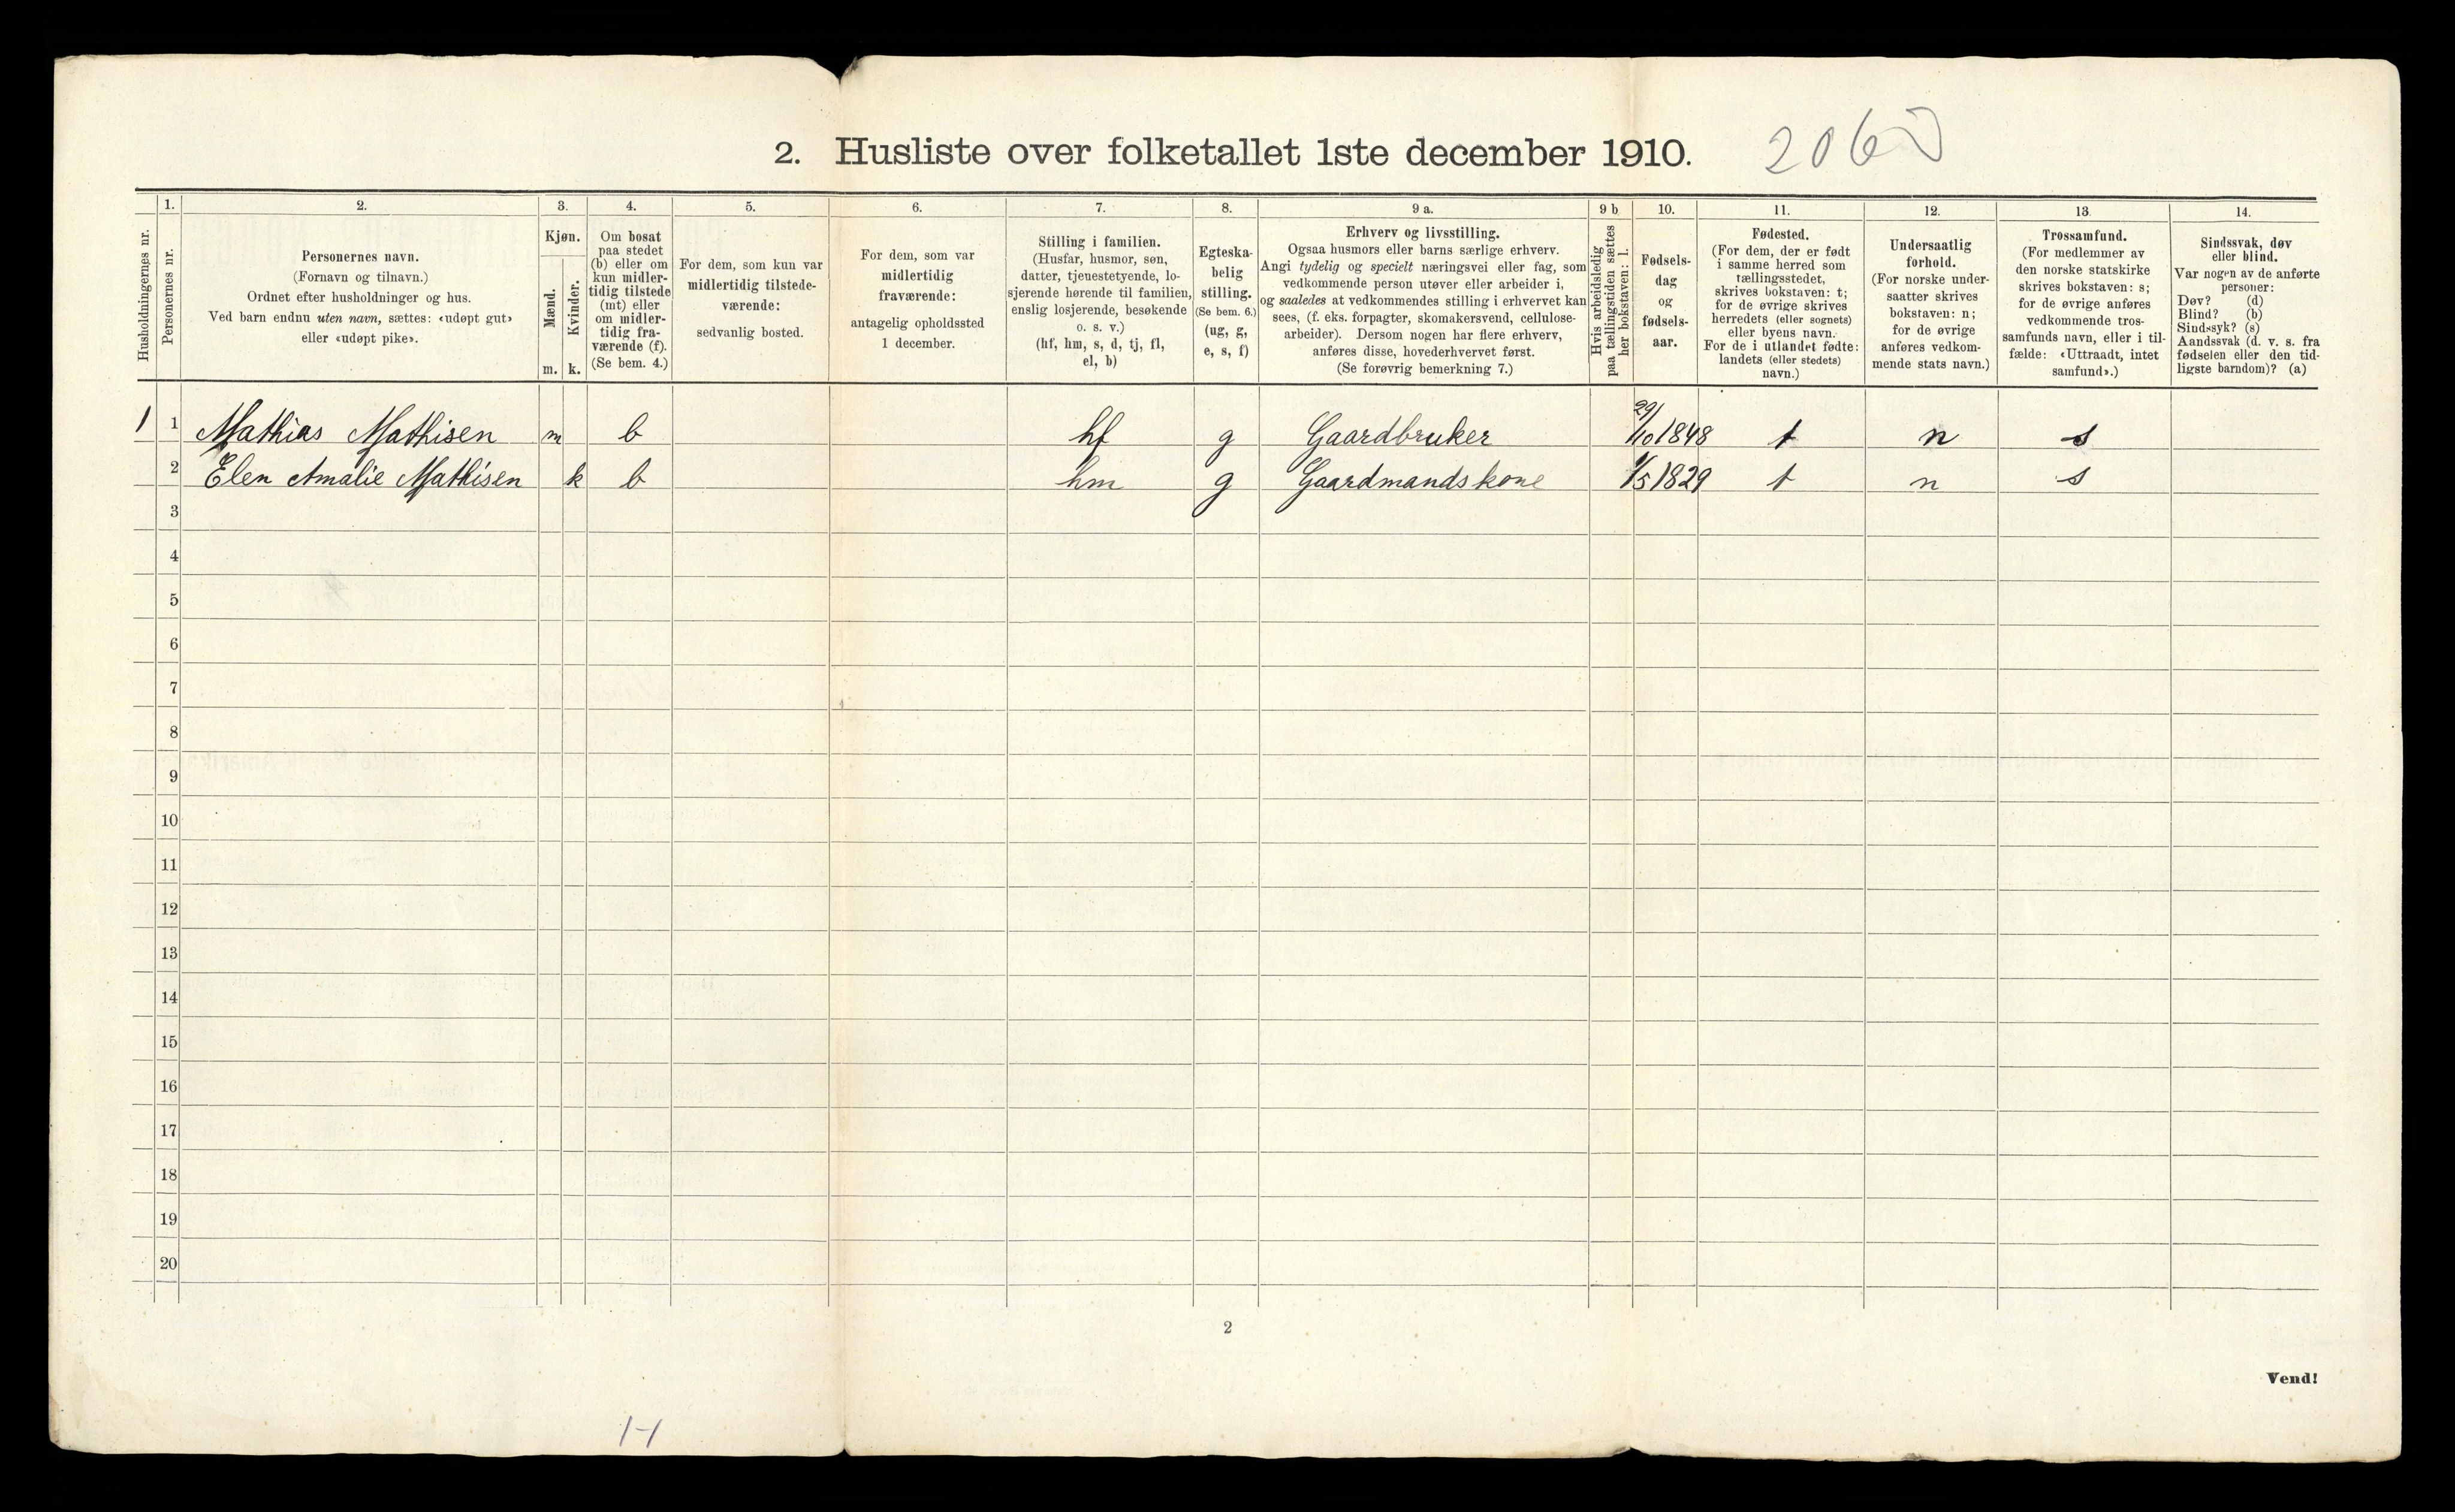 2. Husliste over folketallet 1ste december 1910.
Husholdningernes nr.
1.
Personernes nr.
2.
Personernes navn.
(Fornavn og tilnavn.)
Ordnet efter husholdninger og hus.
Ved barn endnu uten navn, sættes: «udøpt gut»
eller «udøpt pike».
3.
Kjøn.
Mænd.
Kvinder.
m. k.
4.
Om bosat
paa stedet
(b) eller om
kun midler-
tidig tilstede
(mt) eller
om midler-
tidig fra-
værende (f).
(Se bem. 4.)
5.
For dem, som kun var
midlertidig tilstede-
værende:
sedvanlig bosted.
6.
For dem, som var
midlertidig
fraværende:
antagelig opholdssted
1 december.
7.
Stilling i familien.
(Husfar, husmor, søn,
datter, tjenestetyende, lo-
sjerende hørende til familien,
enslig losjerende, besøkende
o. s. v.)
(hf, hm, s, d, tj, fl,
el, b)
8.
Egteska-
belig
stilling.
(Se bem. 6.)
(ug, g,
e, s, f)
9 a.
Erhverv og livsstilling.
Ogsaa husmors eller barns særlige erhverv.
Angi tydelig og specielt næringsvei eller fag, som
vedkommende person utøver eller arbeider i,
og saaledes at vedkommendes stilling i erhvervet kan
sees, (f. eks. forpagter, skomakersvend, cellulose-
arbeider). Dersom nogen har flere erhverv,
anføres disse, hovederhvervet først.
(Se forøvrig bemerkning 7.)
9 b
Hvis arbeidsledig
paa tællingstiden sættes
her bokstaven: l.
10.
Fødsels-
dag
og
fødsels-
aar.
11.
Fødested.
(For dem, der er født
i samme herred som
tællingsstedet,
skrives bokstaven: t;
for de øvrige skrives
herredets (eller sognets)
eller byens navn.
For de i utlandet fødte:
landets (eller stedets)
navn.)
12.
Undersaatlig
forhold.
(For norske under-
saatter skrives
bokstaven: n;
for de øvrige
anføres vedkom-
mende stats navn.)
13.
Trossamfund.
(For medlemmer av
den norske statskirke
skrives bokstaven: s;
for de øvrige anføres
vedkommende tros-
samfunds navn, eller i til-
fælde: «Uttraadt, intet
samfund».)
14.
Sindssvak, døv
eller blind.
Var nogen av de anførte
personer:
Døv? (d)
Blind? (b)
Sindssyk? (s)
Aandssvak (d. v. s. fra
fødselen eller den tid-
ligste barndom)? (a)
1 1 Mathias Mathisen m b hf g Gaardbruker 29/10 1848 t n s
2 Elen Amalie Mathisen k b hm g Gaardmandskone 1/5 1829 t n s
3
4
5
6
7
8
9
10
11
12
13
14
15
16
17
18
19
20
2
Vend!